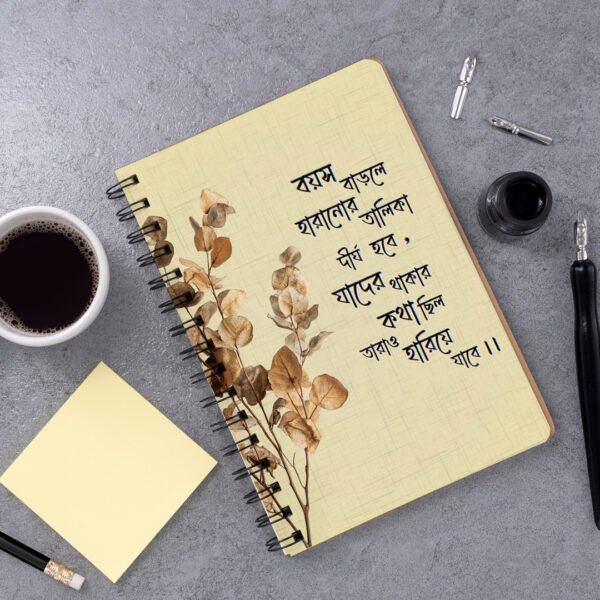 বয়স বাড়লে
হারানোর তালিকা
দীর্ঘ হবে ,
যাদের থাকার
কথা ছিল
তারাও হারিয়ে
যাবে ।।